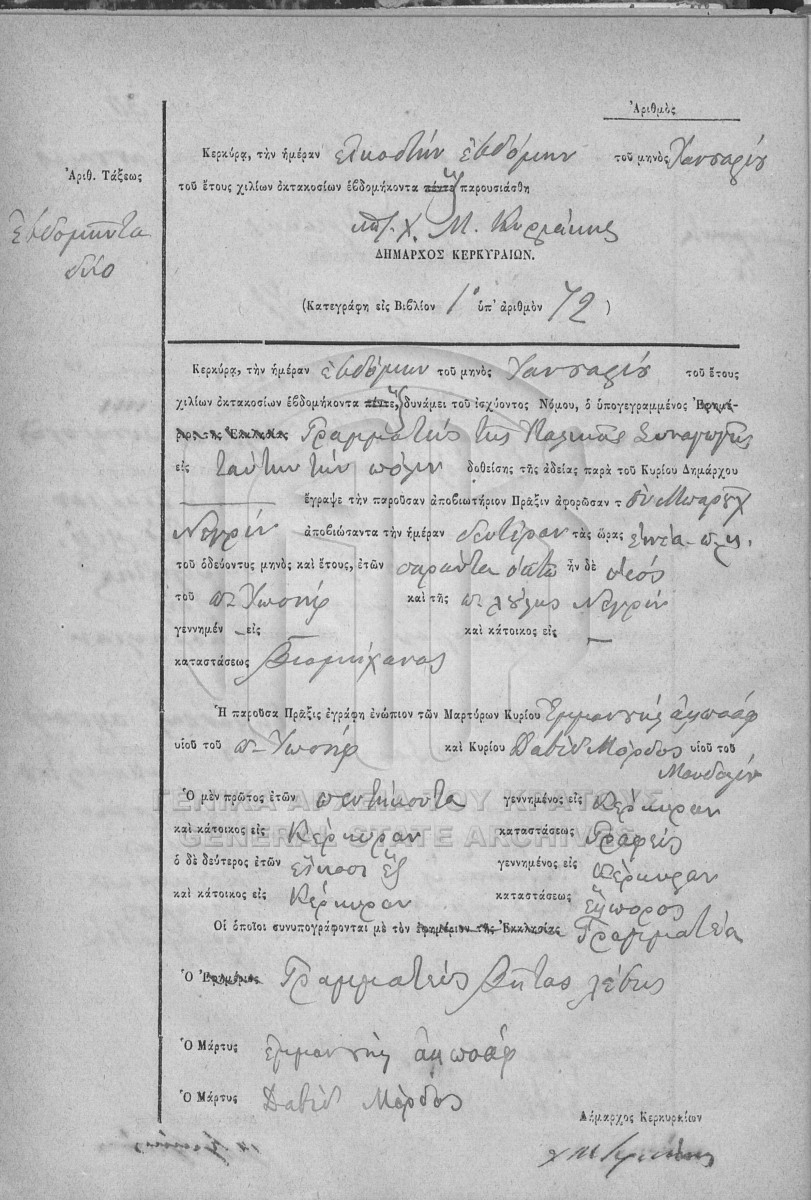 Ἀριθμὸς
Κερκύρᾳ, τὴν ἡμέραν εἰκοστὴν ἑβδόμην τοῦ μηνὸς Ἰανουαρίου
Ἀριθ. Τάξεως
τοῦ ἔτους χιλίων ὀκτακοσίων ἑβδομήκοντα πέντε ἓξ παρουσιάσθη
Ἑβδομῆντα
δύο
Μ. Κυριάκης
ΔΗΜΑΡΧΟΣ ΚΕΡΚΥΡΑΙΩΝ.
(Κατεγράφη εἰς Βιβλίον 1° ὑπ' ἀριθμὸν 72 )
Κερκύρᾳ, τὴν ἡμέραν ἑβδόμην τοῦ μηνὸς Ἰανουαρίου τοῦ ἔτους
χιλίων ὀκτακοσίων ἑβδομήκοντα πέντε, ἓξ δυνάμει τοῦ ἰσχύοντος Νόμου, ὁ ὑπογεγραμμένος Ἐφημέ-
ριος τῆς Ἐκκλησίας Γραμματεὺς τῆς Συναγωγῆς
εἰς ταύτην τὴν πόλιν δοθείσης τῆς ἀδείας παρὰ τοῦ Κυρίου Δημάρχου
ἔγραψε τὴν παροῦσαν ἀποβιωτήριον Πρᾶξιν ἀφορῶσαν τὸν Μπαρὲχ
Νεγρὶν ἀποβιώσαντα τὴν ἡμέραν δευτέραν τὰς ὥρας ἐννέα π.μ.
τοῦ ὁδεύοντος μηνὸς καὶ ἔτους, ἐτῶν σαράντα ὀκτὼ ἦν δὲ υἱὸς
τοῦ π. Ἰωσὴφ καὶ τῆς π. Νεγρὶν
γεννημέν εἰς καὶ κάτοικος εἰς
καταστάσεως Βιομήχανος
Ἡ παροῦσα Πρᾶξις ἐγράφη ἐνώπιον τῶν Μαρτύρων Κυρίου Ἐμμανουὴλ
υἱοῦ τοῦ π. Ἰωσὴφ καὶ Κυρίου Δαβὶδ Μόρδος υἱοῦ τοῦ
Ὁ μὲν πρῶτος ἐτῶν πεντήκοντα γεννημένος εἰς Κέρκυραν
καὶ κάτοικος εἰς Κέρκυραν καταστάσεως Γραφεὺς
ὁ δὲ δεύτερος ἐτῶν εἴκοσι ἓξ γεννημένος εἰς Κέρκυραν
καὶ κάτοικος εἰς Κέρκυραν καταστάσεως ἔμπορος
Οἱ ὁποῖοι συνυπογράφονται μὲ τὸν ἐφημέριον τῆς Ἐκκλησίας Γραμματέα
Ὁ Ἐφημέριος Γραμματεὺς Βῆτας Λέβης
Ὁ Μάρτυς Ἐμμανουὴλ
Ὁ Μάρτυς Δαβὶδ Μόρδος
Δήμαρχος Κερκυραίων
ΓΕΝΙΚΑ ΑΡΧΕΙΑ ΤΟΥ ΚΡΑΤΟΥΣ
GENERAL STATE ARCHIVES